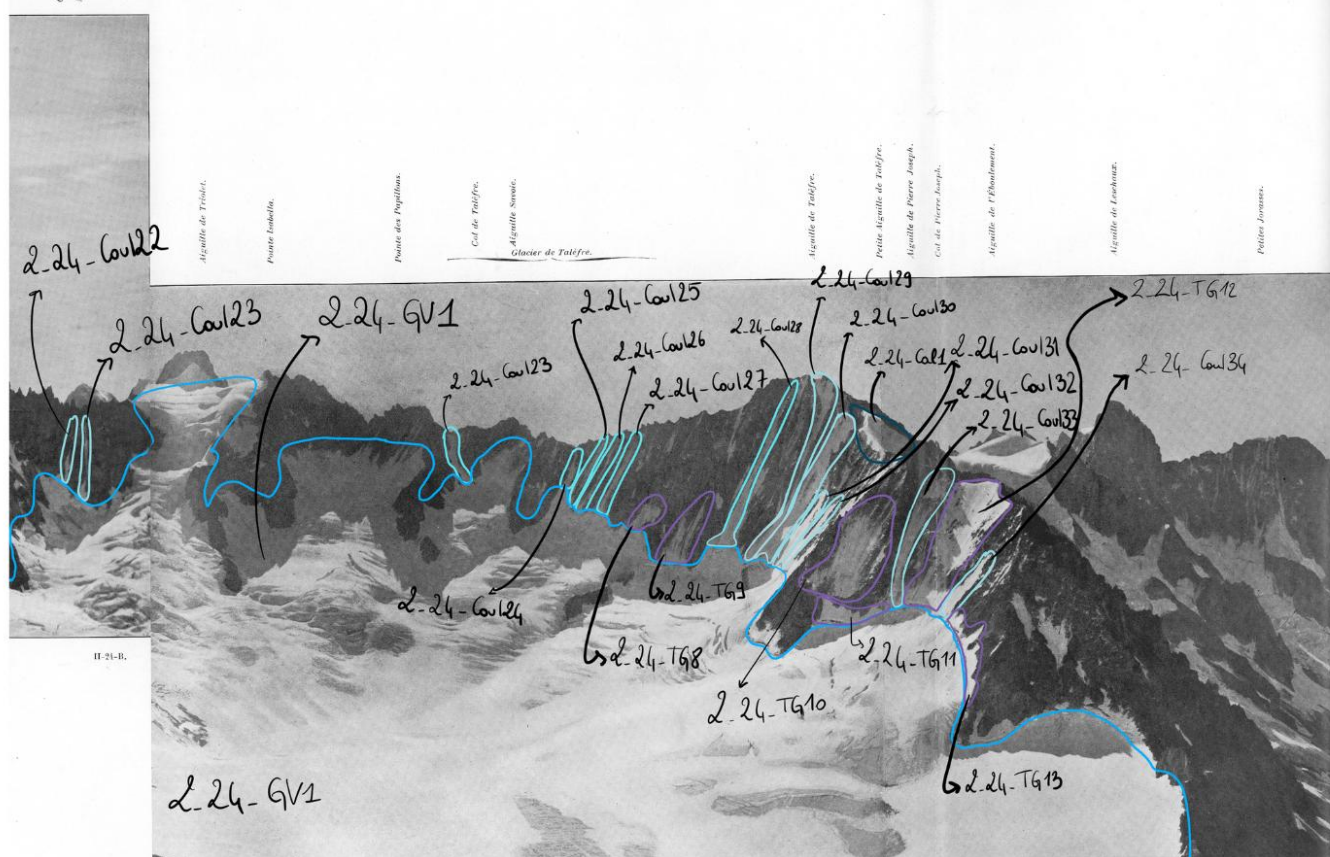 Aiguille de Triolet.
Pointe Isabella.
Pointe des Papillons.
Col de Talèfre.
Aiguille Savoie.
Glacier de Talèfre.
Aiguille de Talèfre.
Petite Aiguille de Talèfre.
Aiguille de Pierre Joseph.
Col de Pierre Joseph.
Aiguille de l'Éboulement.
Aiguille de Leschaux.
Petites Jorasses.
2-24-Coul22
2-24-Coul23
2-24-GV1
2-24-Coul23
2-24-Coul25
2-24-Coul26
2-24-Coul27
2-24-Coul28
2-24-Coul29
2-24-Coul30
2-24-Cal1
2-24-Coul31
2-24-Coul32
2-24-Coul33
2-24-TG12
2-24-Coul34
2-24-Coul24
2-24-TG9
2-24-TG8
2-24-TG10
2-24-TG11
2-24-TG13
2-24-GV1
II-24-B.